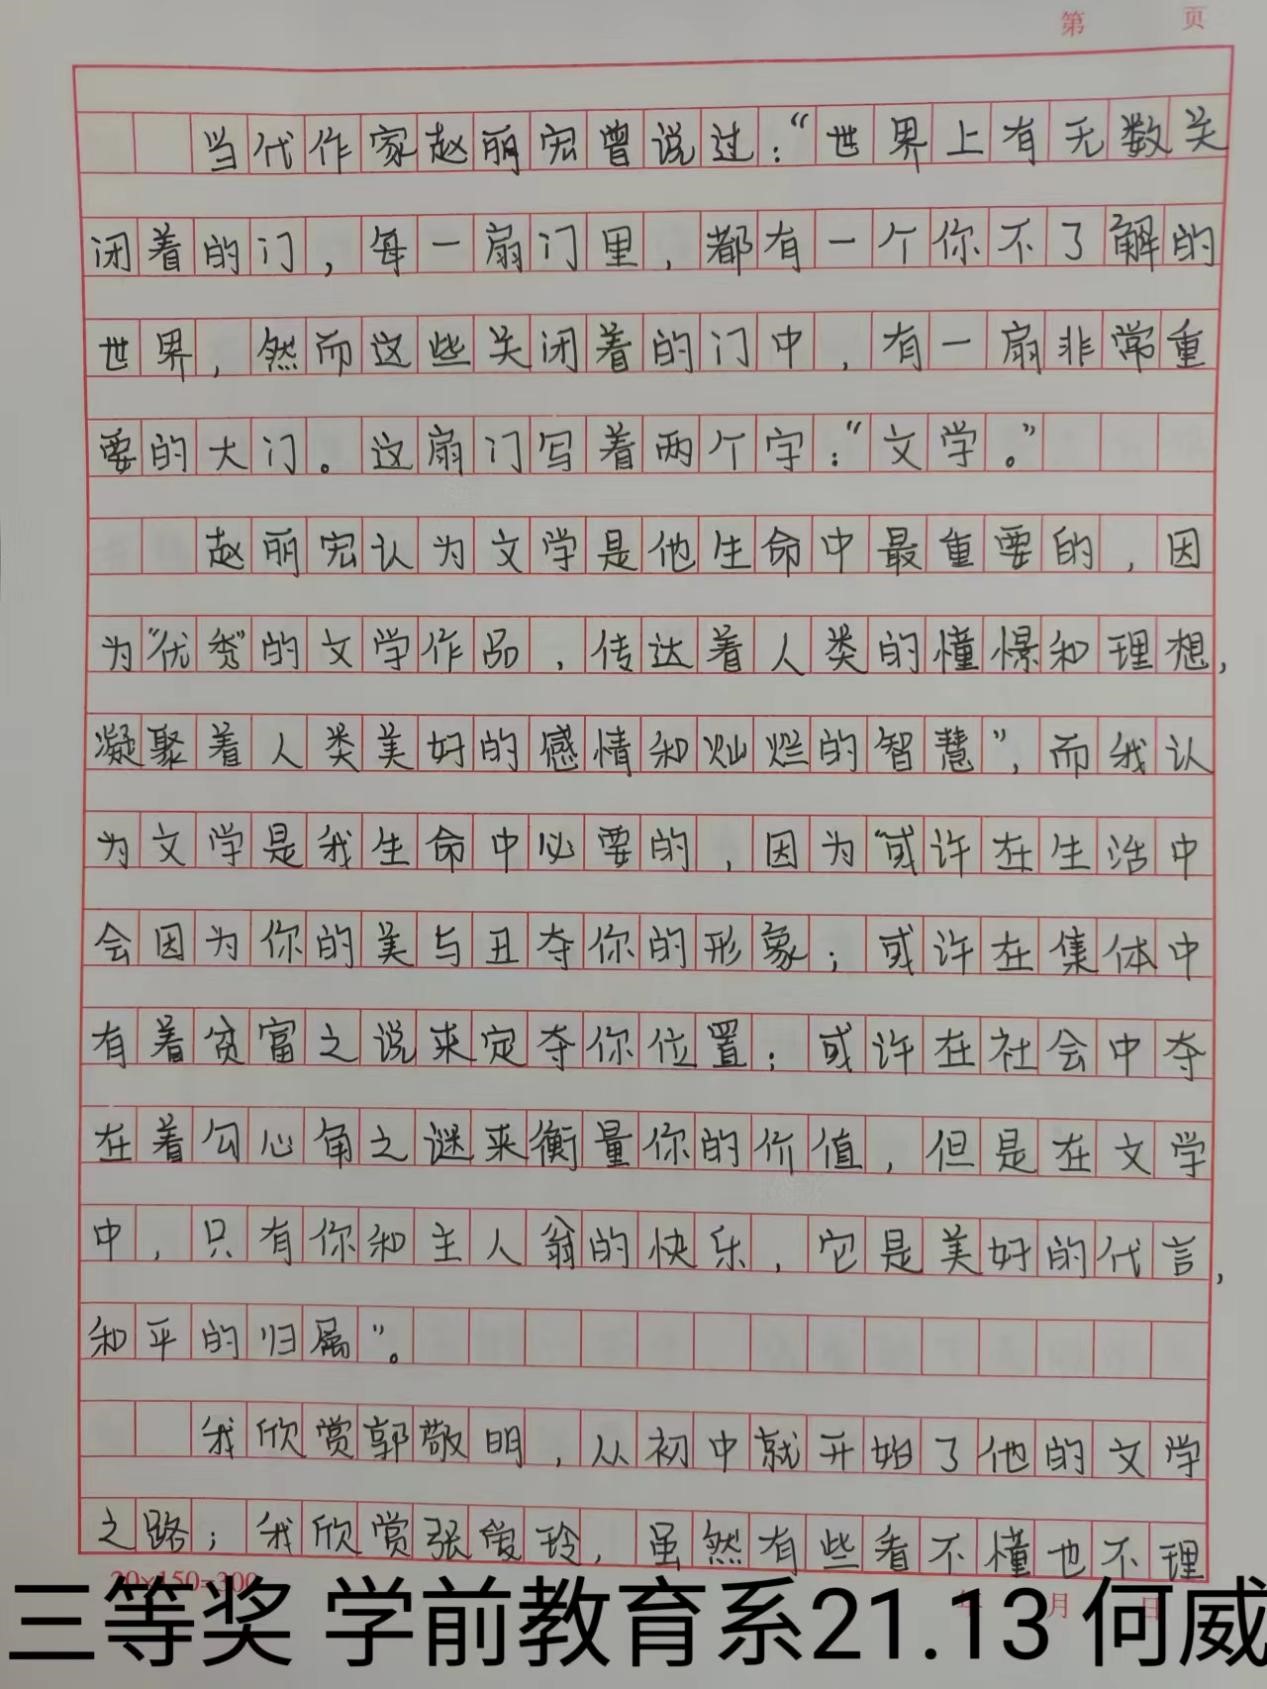 第 页
当代作家赵丽宏曾说过：“世界上有无数关
闭着的门，每一扇门里，都有一个你不了解的
世界，然而这些关闭着的门中，有一扇非常重
要的大门。这扇门写着两个字：“文学。”
赵丽宏认为文学是他生命中最重要的，因
为“优秀”的文学作品，传达着人类的憧憬和理想，
凝聚着人类美好的感情和灿烂的智慧”，而我认
为文学是我生命中必要的，因为“或许在生活中
会因为你的美与丑夺你的形象；或许在集体中
有着贫富之说来定夺你位置；或许在社会中夺
在着勾心角之谜来衡量你的价值，但是在文学
中，只有你和主人翁的快乐，它是美好的代言，
和平的归属”。
我欣赏郭敬明，从初中就开始了他的文学
之路；我欣赏张爱玲，虽然有些看不懂也不理
20×150=300
年 月 日
三等奖 学前教育系21.13 何威